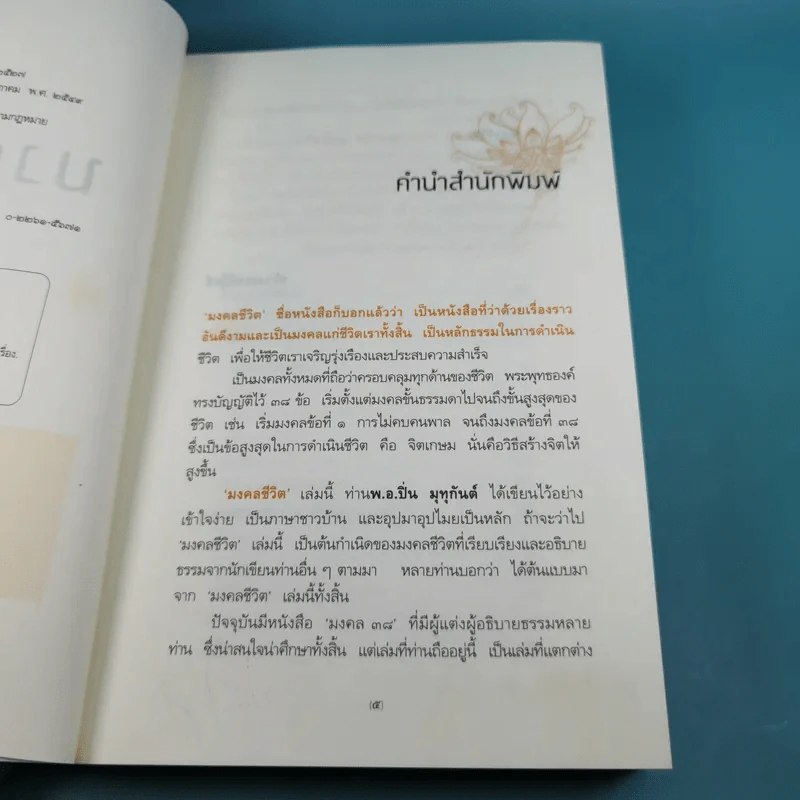 ๒๕๒๗
พ.ศ. ๒๕๔๙
ตามกฎหมาย
๐-๒๒๖๑-๕๖๗๑
เรื่อง.
คำนำสำนักพิมพ์
'มงคลชีวิต' ชื่อหนังสือก็บอกแล้วว่า เป็นหนังสือที่ว่าด้วยเรื่องราว
อันดีงามและเป็นมงคลแก่ชีวิตเราทั้งสิ้น เป็นหลักธรรมในการดำเนิน
ชีวิต เพื่อให้ชีวิตเราเจริญรุ่งเรืองและประสบความสำเร็จ
เป็นมงคลทั้งหมดที่ถือว่าครอบคลุมทุกด้านของชีวิต พระพุทธองค์
ทรงบัญญัติไว้ ๓๘ ข้อ เริ่มตั้งแต่มงคลขั้นธรรมดาไปจนถึงขั้นสูงสุดของ
ชีวิต เช่น เริ่มมงคลข้อที่ ๑ การไม่คบคนพาล จนถึงมงคลข้อที่ ๓๘
ซึ่งเป็นข้อสูงสุดในการดำเนินชีวิต คือ จิตเกษม นั่นคือวิธีสร้างจิตให้
สูงขึ้น
'มงคลชีวิต' เล่มนี้ ท่านพ.อ.ปิ่น มุทุกันต์ ได้เขียนไว้อย่าง
เข้าใจง่าย เป็นภาษาชาวบ้าน และอุปมาอุปไมยเป็นหลัก ถ้าจะว่าไป
'มงคลชีวิต' เล่มนี้ เป็นต้นกำเนิดของมงคลชีวิตที่เรียบเรียงและอธิบาย
ธรรมจากนักเขียนท่านอื่น ๆ ตามมา หลายท่านบอกว่า ได้ต้นแบบมา
จาก 'มงคลชีวิต' เล่มนี้ทั้งสิ้น
ปัจจุบันมีหนังสือ 'มงคล ๓๘' ที่มีผู้แต่งผู้อธิบายธรรมหลาย
ท่าน ซึ่งน่าสนใจน่าศึกษาทั้งสิ้น แต่เล่มที่ท่านถืออยู่นี้ เป็นเล่มที่แตกต่าง
(๕)